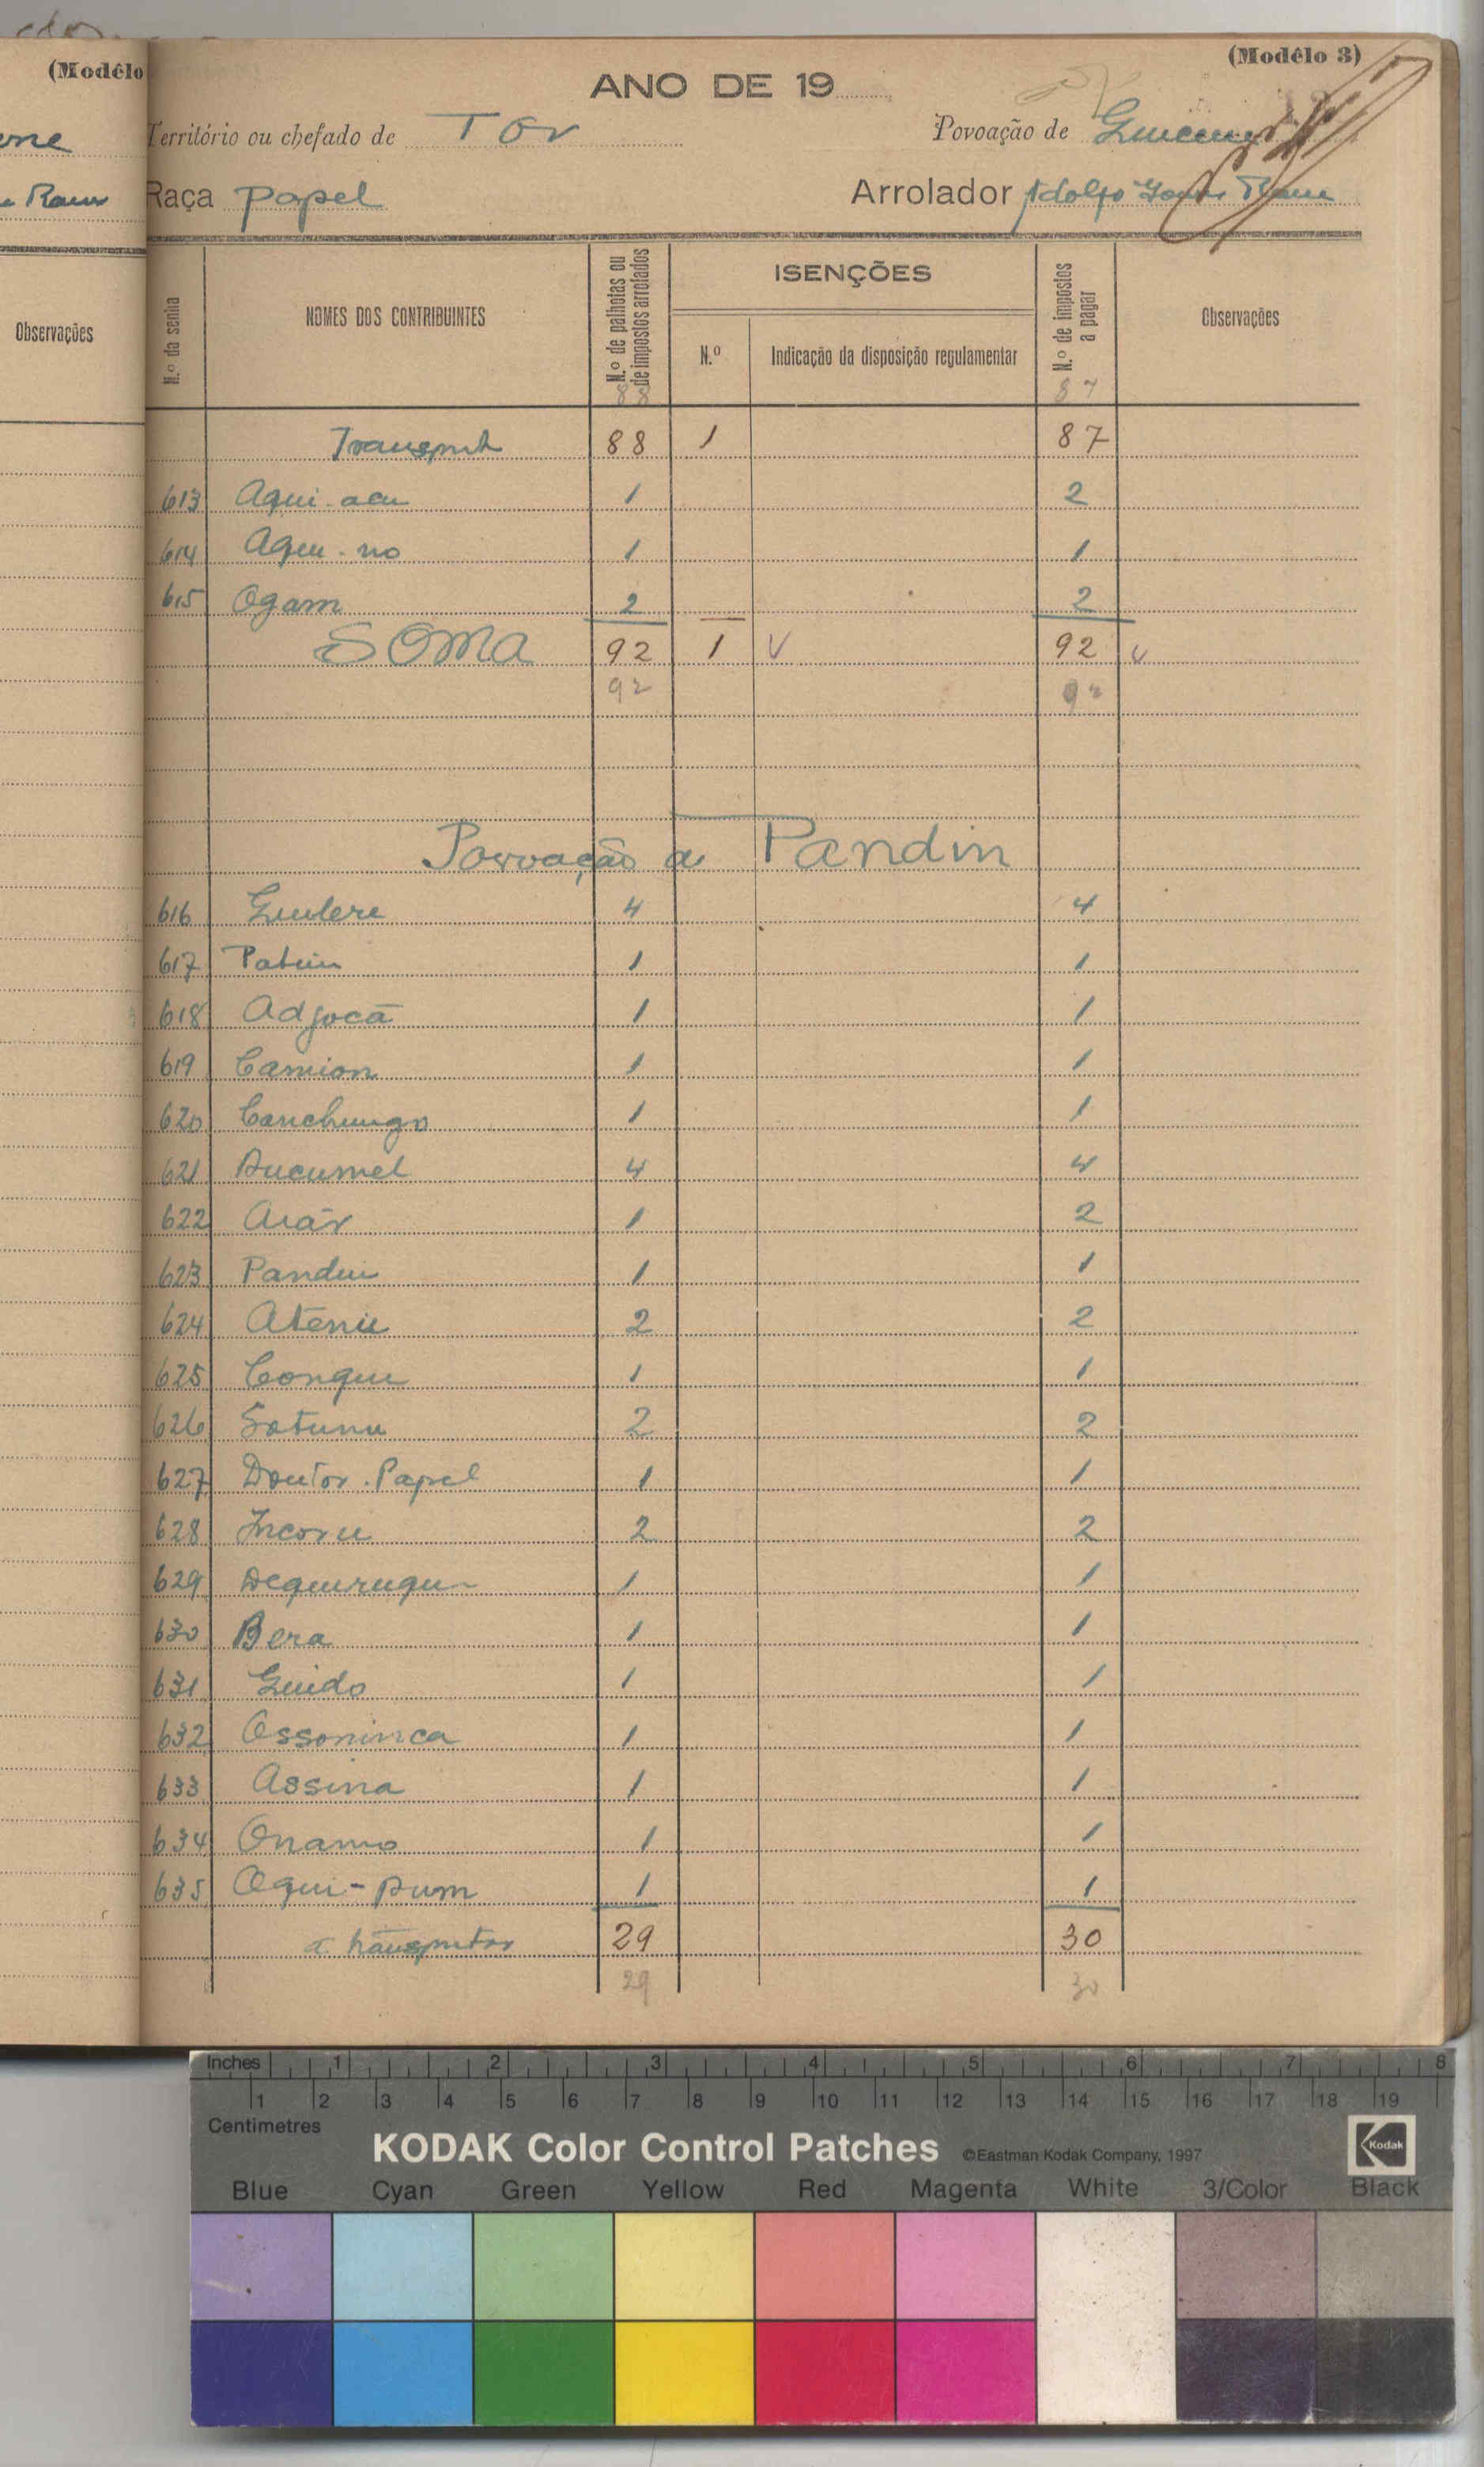 (Modêlo
(Modêlo 3)
ANO DE 19
Território ou chefado de Tor Povoação de
Raça Papel Arrolador Adolfo Gomes
Observações
N.º da senha NOMES DOS CONTRIBUINTES N.º de palhotas ou de impostos arrolados ISENÇÕES N.º Indicação da disposição regulamentar N.º de impostos a pagar Observações
88 87
Transporte 88 1 87
613 Aqui-acu 1 2
614 Aque-no 1 1
615 Ogam 2 2
SOMA 92 1 V 92 V
92 92
Povoação de Pandin
616 Gulere 4 4
617 Patuin 1 1
618 Adjocã 1 1
619 Camion 1 1
620 Canchungo 1 1
621 Bucumel 4 4
622 1 2
623 Pandin 1 1
624 Atenie 2 2
625 Congue 1 1
626 Satunu 2 2
627 Doutor Papel 1 1
628 Incoru 2 2
629 1 1
630 Bera 1 1
631 Guido 1 1
632 Ossoninca 1 1
633 Assina 1 1
634 Onamo 1 1
635 Oqui-pum 1 1
a transportar 29 30
29 30
Inches 1 2 3 4 5 6 7 8
1 2 3 4 5 6 7 8 9 10 11 12 13 14 15 16 17 18 19
Centimetres
KODAK Color Control Patches ©Eastman Kodak Company, 1997 Kodak
Blue Cyan Green Yellow Red Magenta White 3/Color Black